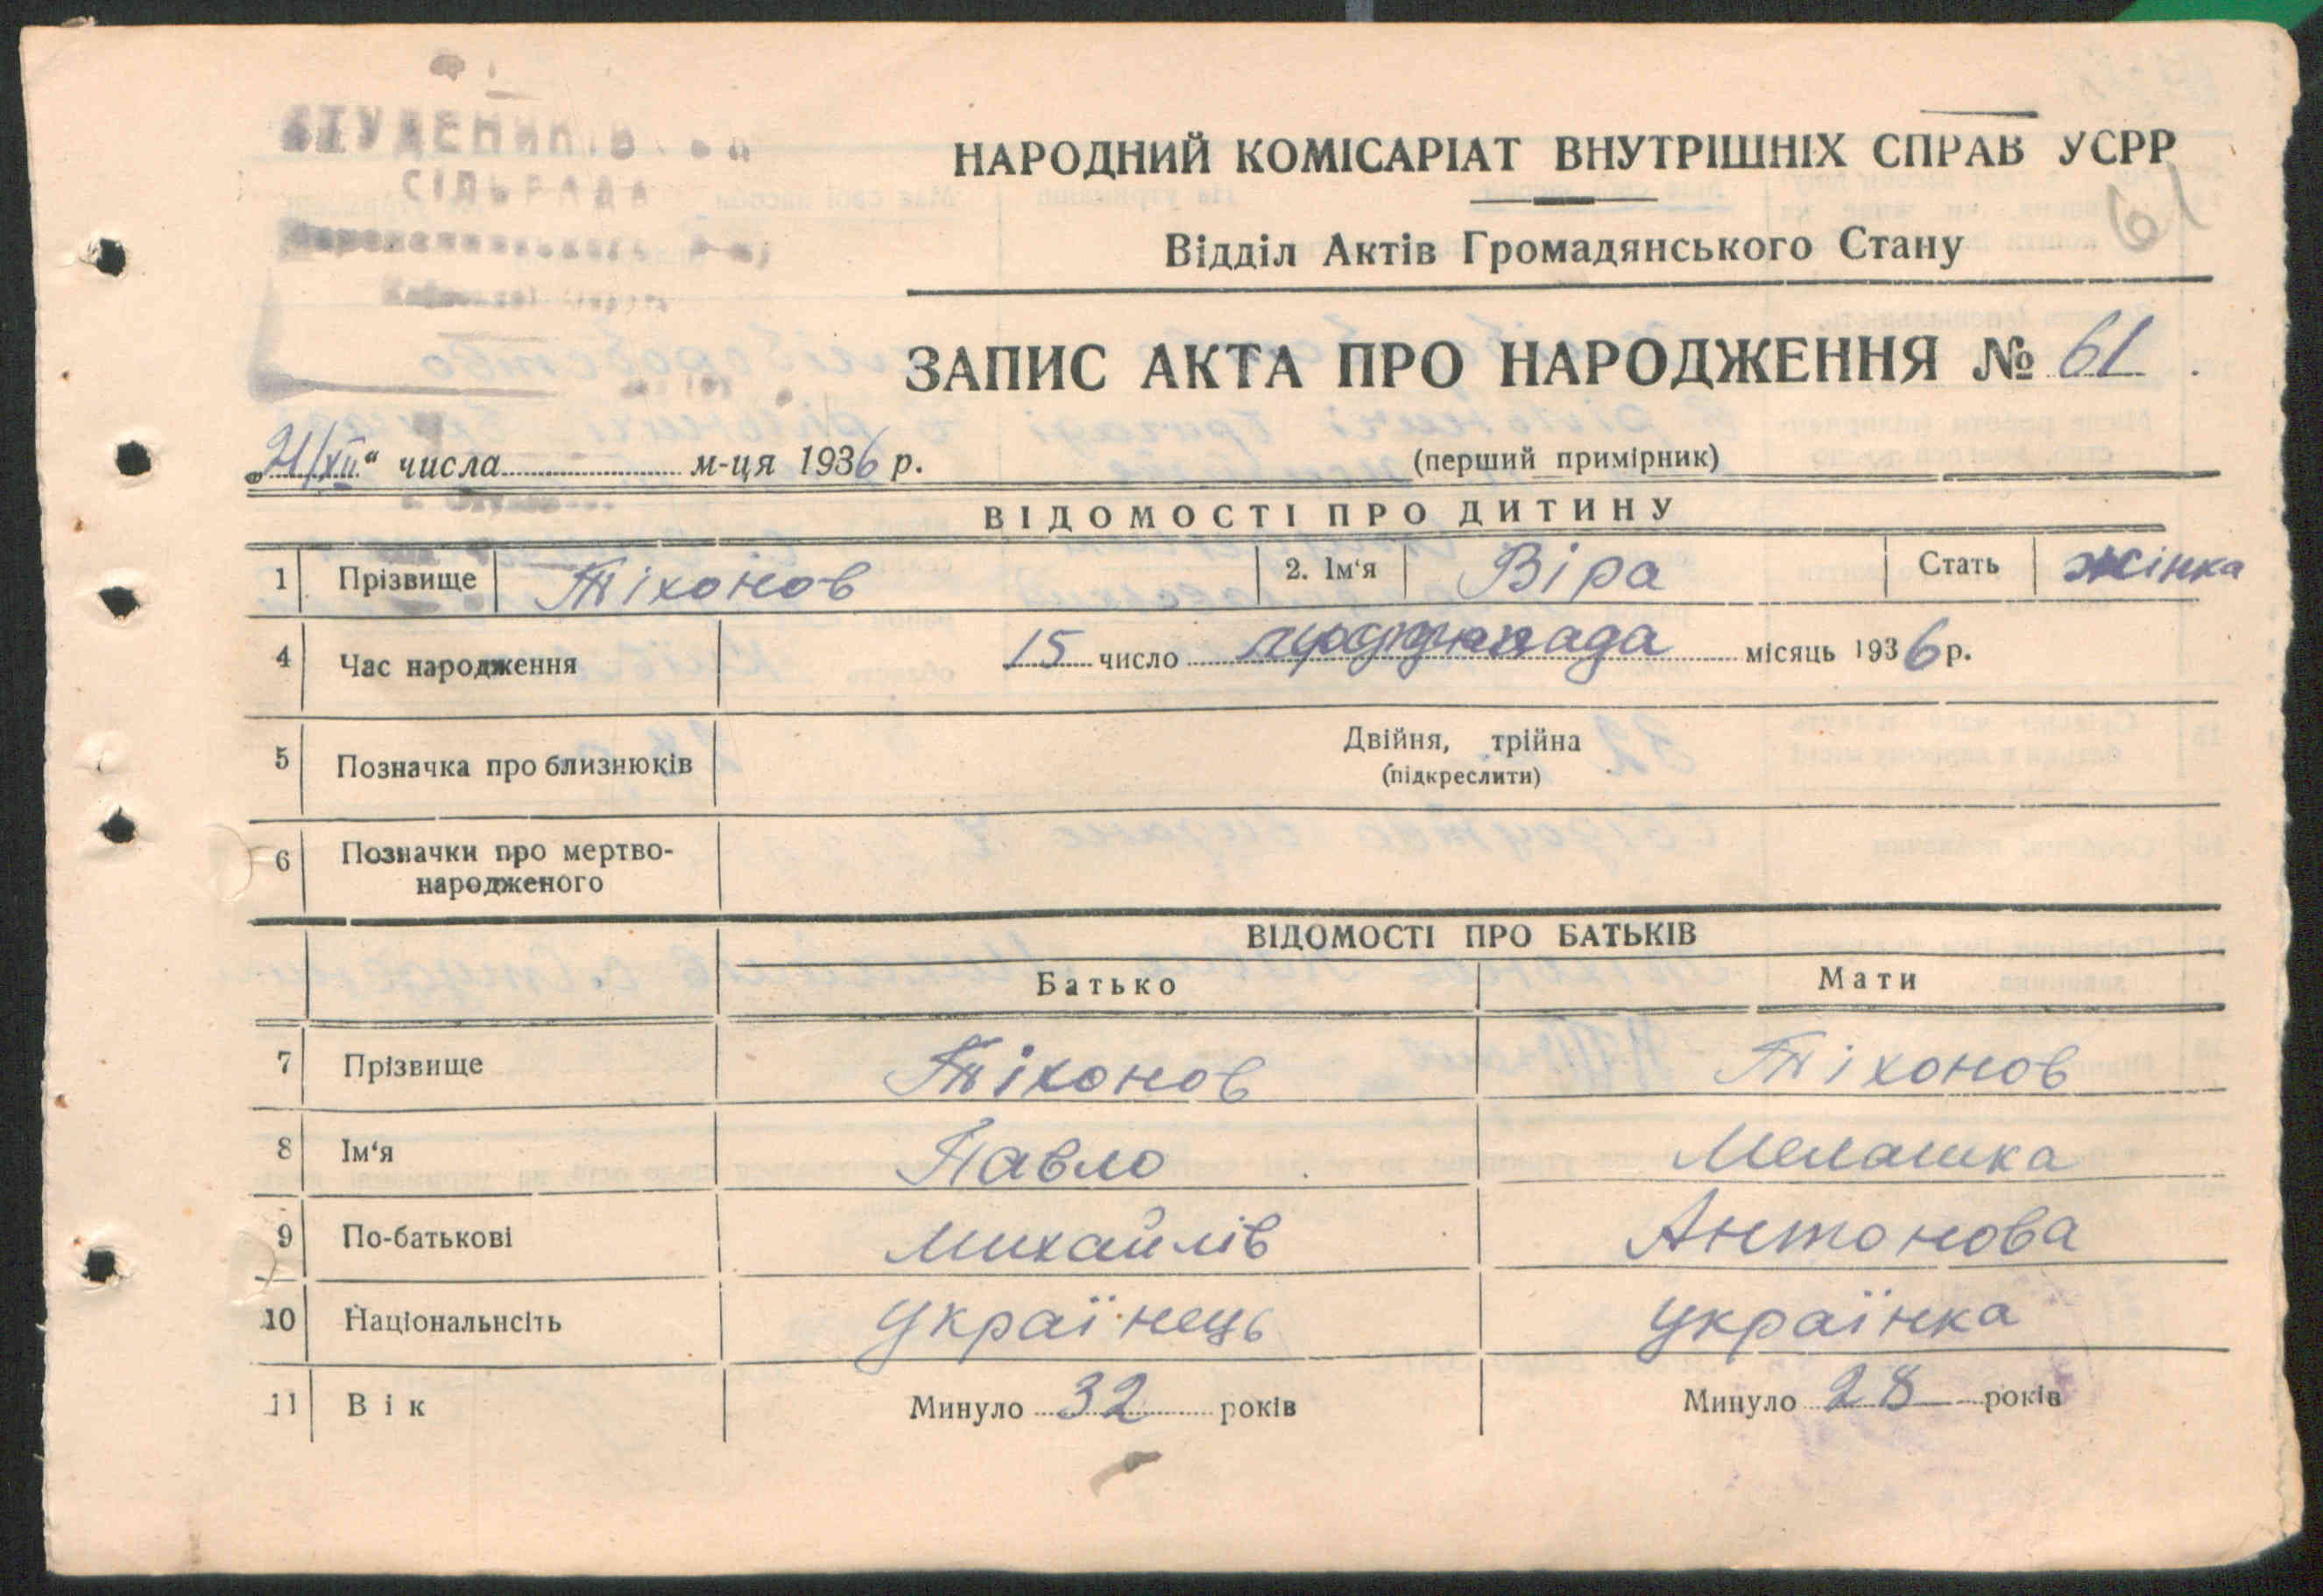 СТУДЕНИКІВ
СІЛЬРАДА
НАРОДНИЙ КОМІСАРІАТ ВНУТРІШНІХ СПРАВ УСРР
61
Відділ Актів Громадянського Стану
ЗАПИС АКТА ПРО НАРОДЖЕННЯ № 61.
„21/XII“ числа м-ця 1936 р. (перший примірник)
ВІДОМОСТІ ПРО ДИТИНУ
1 Прізвище Тіхонов 2. Ім‘я Віра Стать жінка
4 Час народження 15 число місяць 1936 р.
5 Позначка про близнюків Двійня, трійна
(підкреслити)
6 Позначки про мертво-
народженого
ВІДОМОСТІ ПРО БАТЬКІВ
Батько Мати
7 Прізвище Тіхонов Тіхонов
8 Ім‘я Павло Мелашка
9 По-батькові Михайлів Антонова
10 Національнсіть Українець Українка
11 Вік Минуло 32 років Минуло 28 років